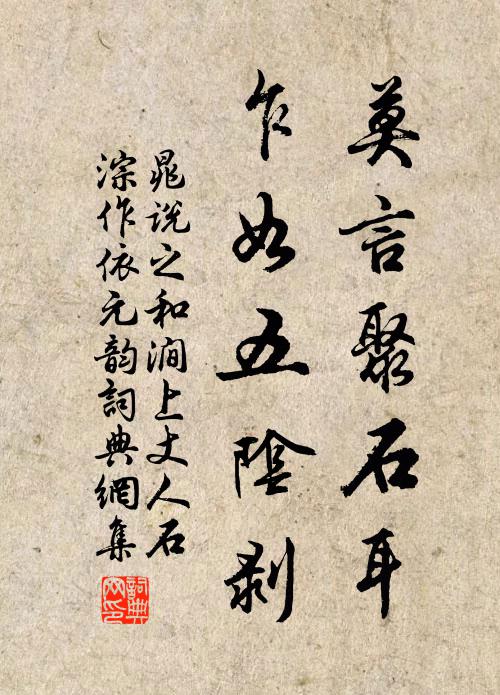 莫言聚石耳
乍如五陰剥
晁説之和澗上丈人石
淙作依元韵詞典網集
詞典网印